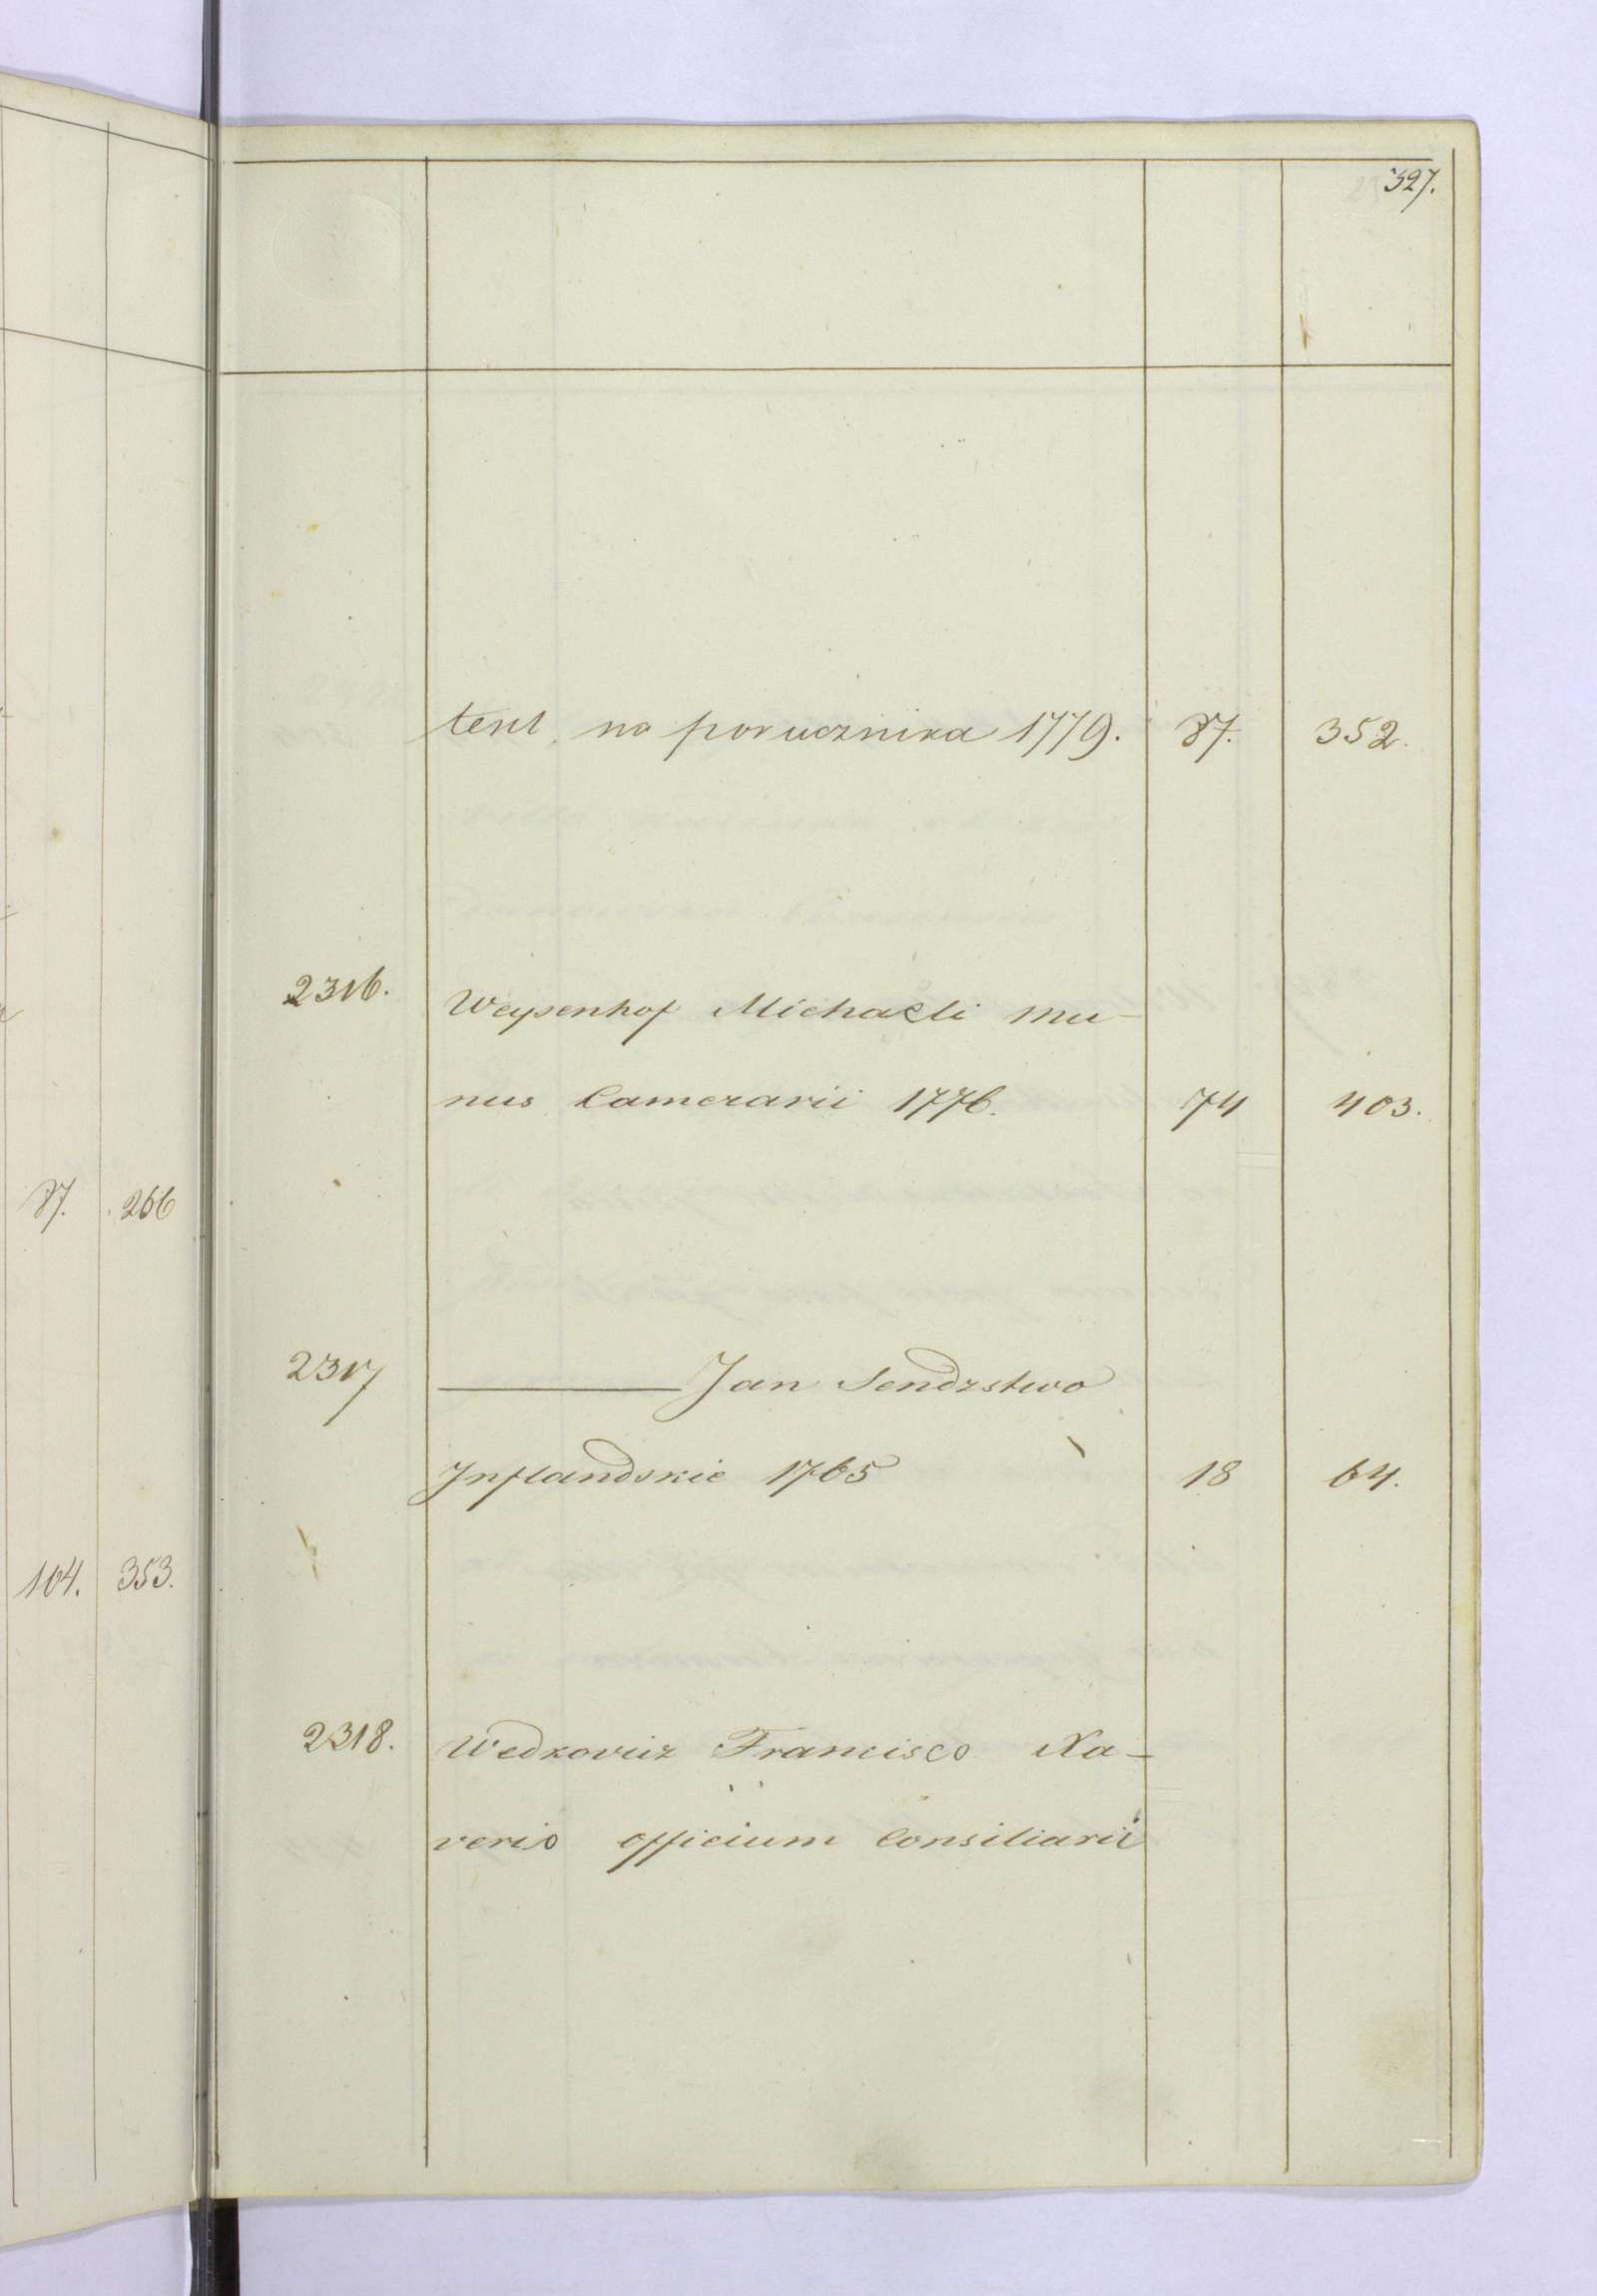 327.
tent na porucznika 1779. 87. 352.
2316. Weysenhof Michaeli mu-
nus Camerarii 1776. 74 403.
2317 ——— Jan Sendzstwo
Inflandskie 1765 18 64.
2318. Wedkovicz Francisco Xa-
verio officium Consiliarii
87. 266
104. 353.